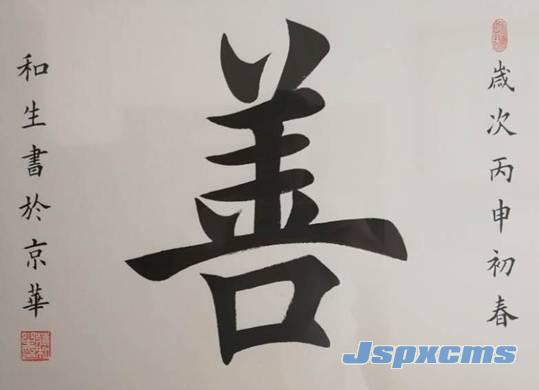 歲次丙申初春
善
和生書於京華
Jspxcms